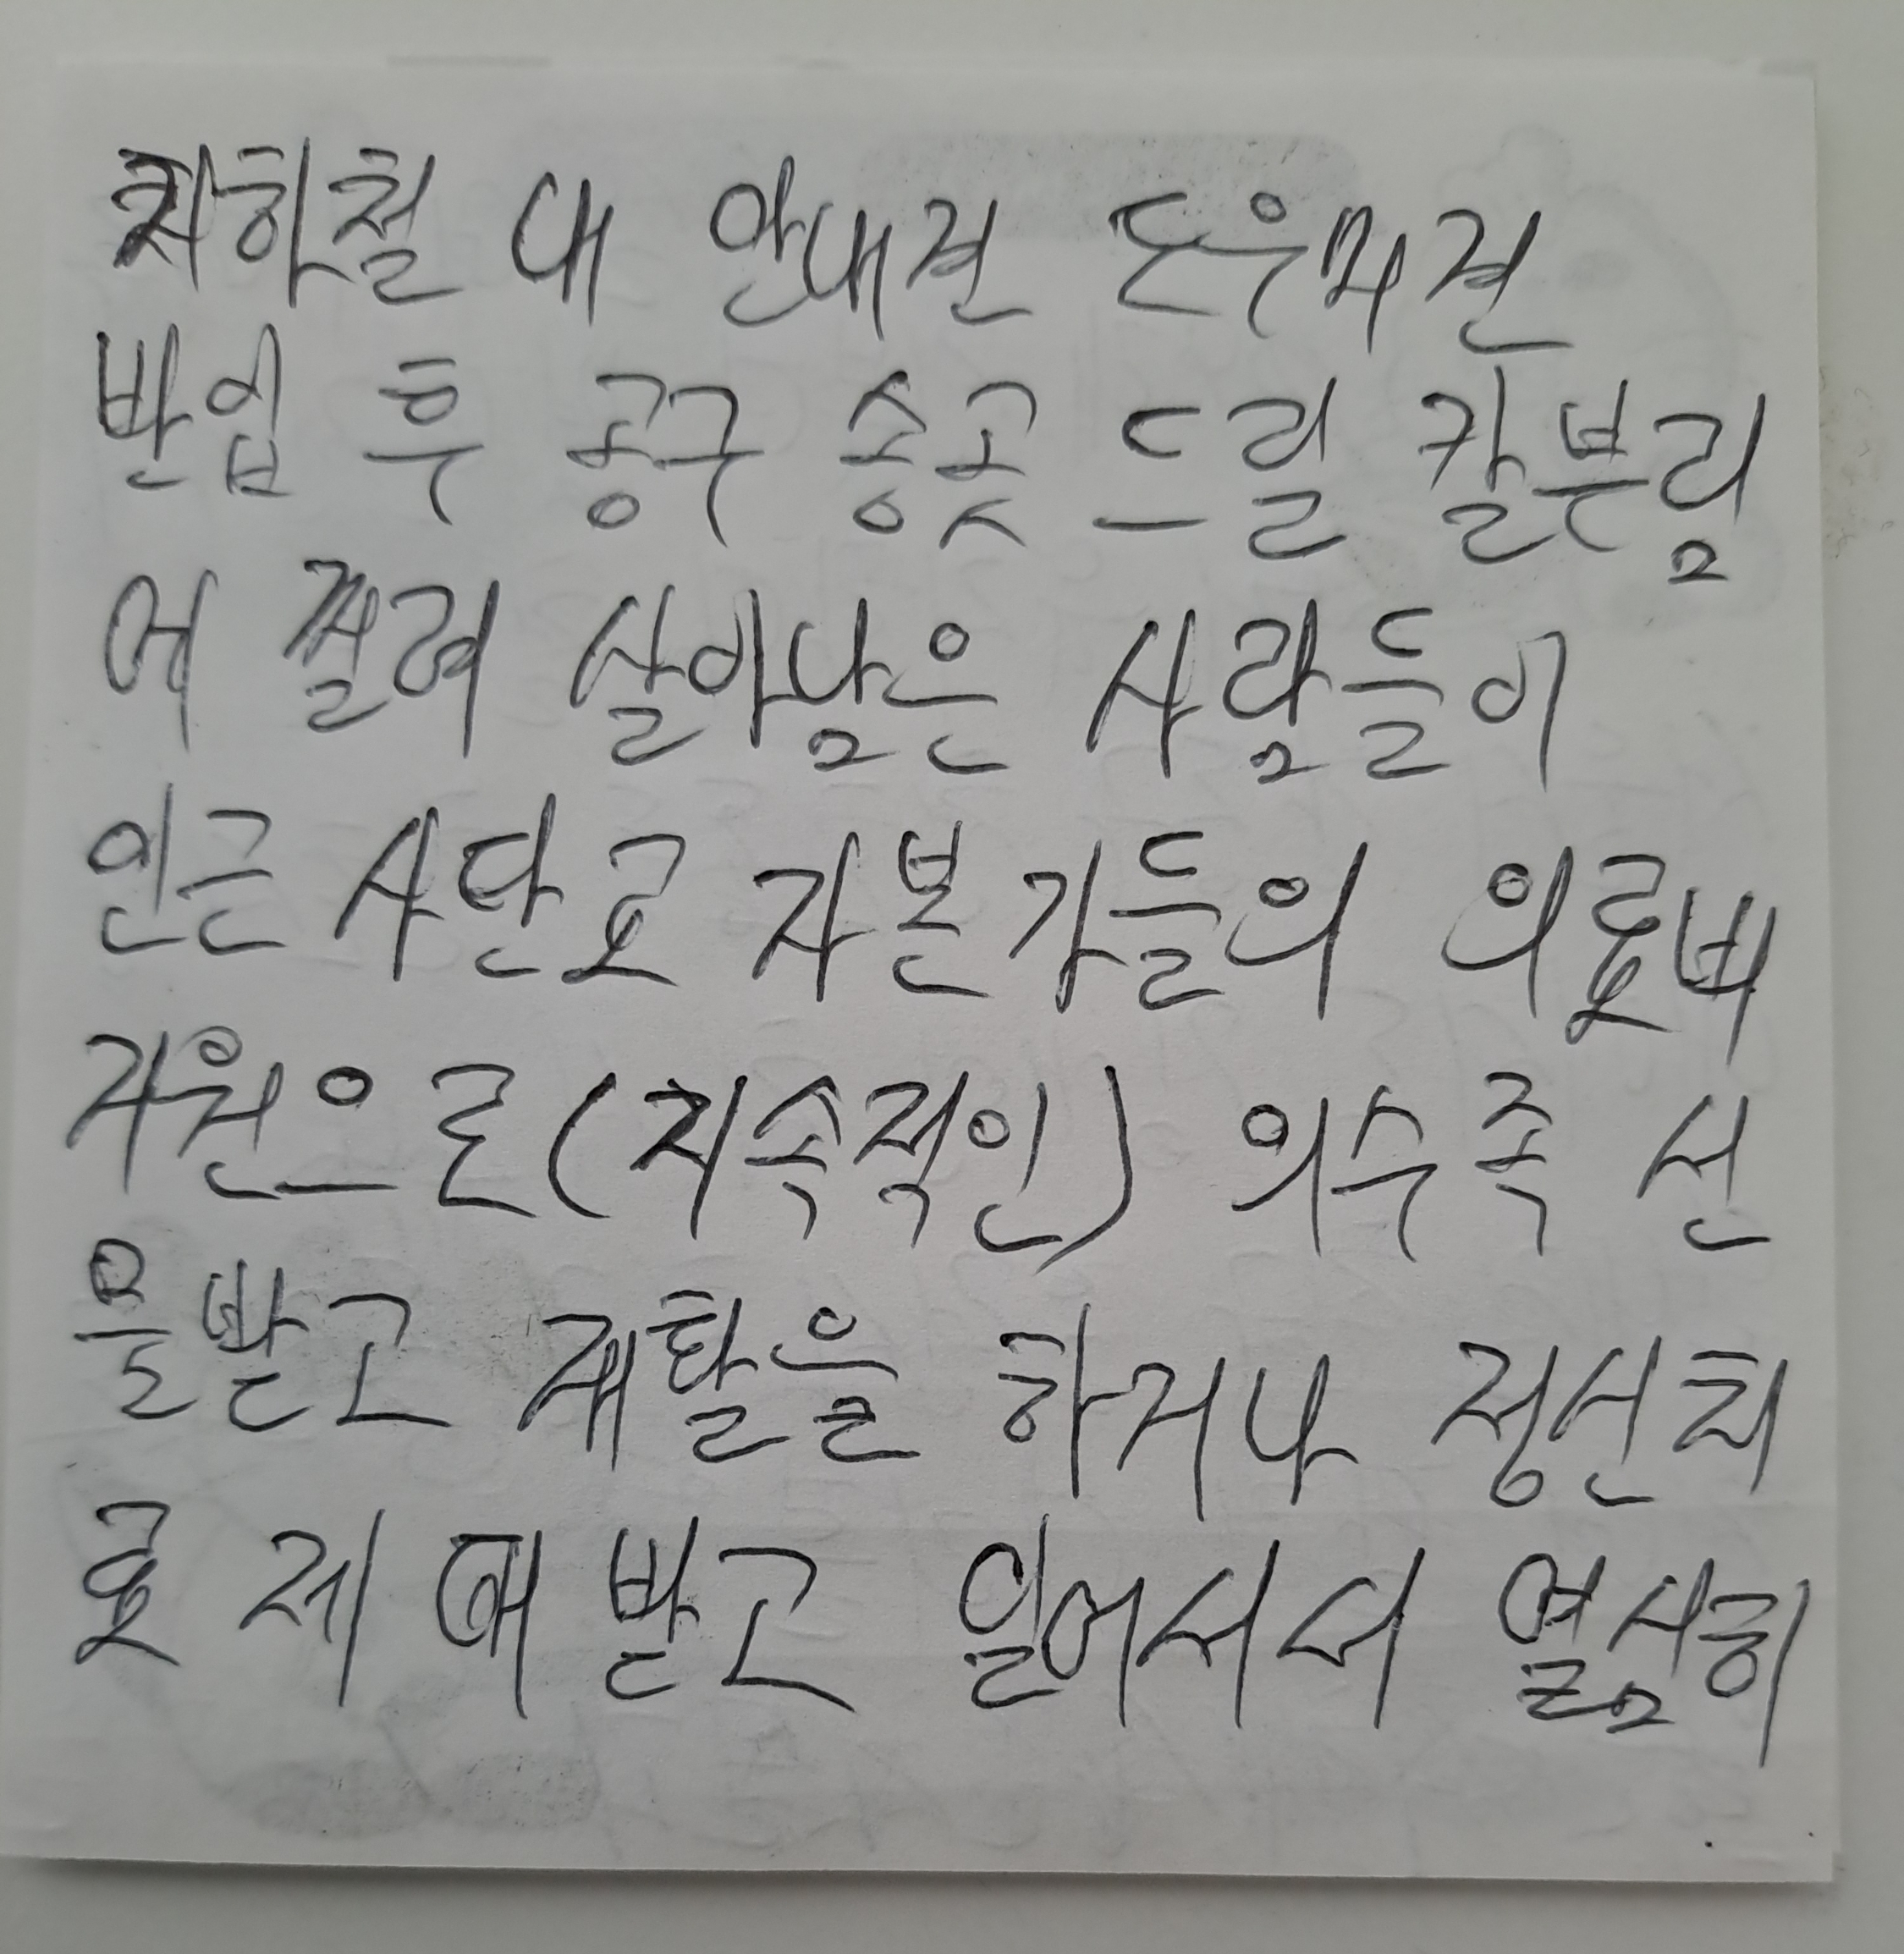 지하철 내 안내견 도우미견
반입 후 공구 송곳 드릴 칼부림
에 찔려 살아남은 사람들이
인근 사단로 자본가들의 의료비
지원으로(지속적인) 의수족 선
을받고 재활을 하거나 정신치
료 제대 받고 일어서서 열심히